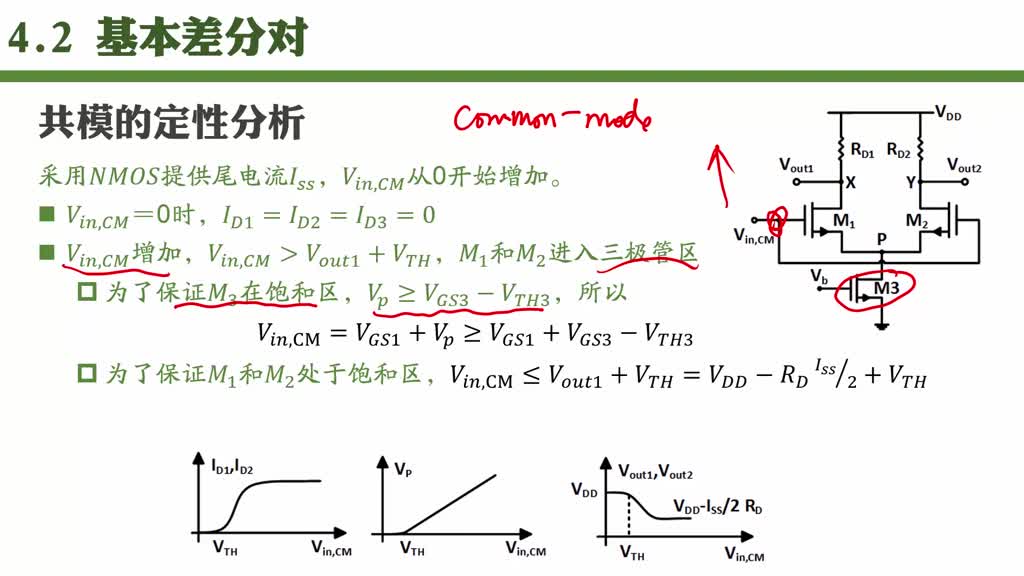 4.2 基本差分对
共模的定性分析
Common-mode
采用NMOS提供尾电流I_{SS}，V_{in,CM}从0开始增加。
■ V_{in,CM}=0时，I_{D1} = I_{D2} = I_{D3} = 0
■ V_{in,CM}增加，V_{in,CM} > V_{out1} + V_{TH}，M_1和M_2进入三极管区
为了保证M_3在饱和区，V_p ≥ V_{GS3} − V_{TH3}，所以
V_{in,CM} = V_{GS1} + V_p ≥ V_{GS1} + V_{GS3} − V_{TH3}
为了保证M_1和M_2处于饱和区，V_{in,CM} ≤ V_{out1} + V_{TH} = V_{DD} − R_D I_{SS}/2 + V_{TH}
V_{DD}
R_{D1} R_{D2}
V_{out1} V_{out2}
X Y
M_1 M_2
V_{in,CM} P
V_b M3
I_{D1},I_{D2}
V_{TH} V_{in,CM}
V_P
V_{TH} V_{in,CM}
V_{out1},V_{out2}
V_{DD}
V_{DD}-I_{SS}/2 R_D
V_{TH} V_{in,CM}